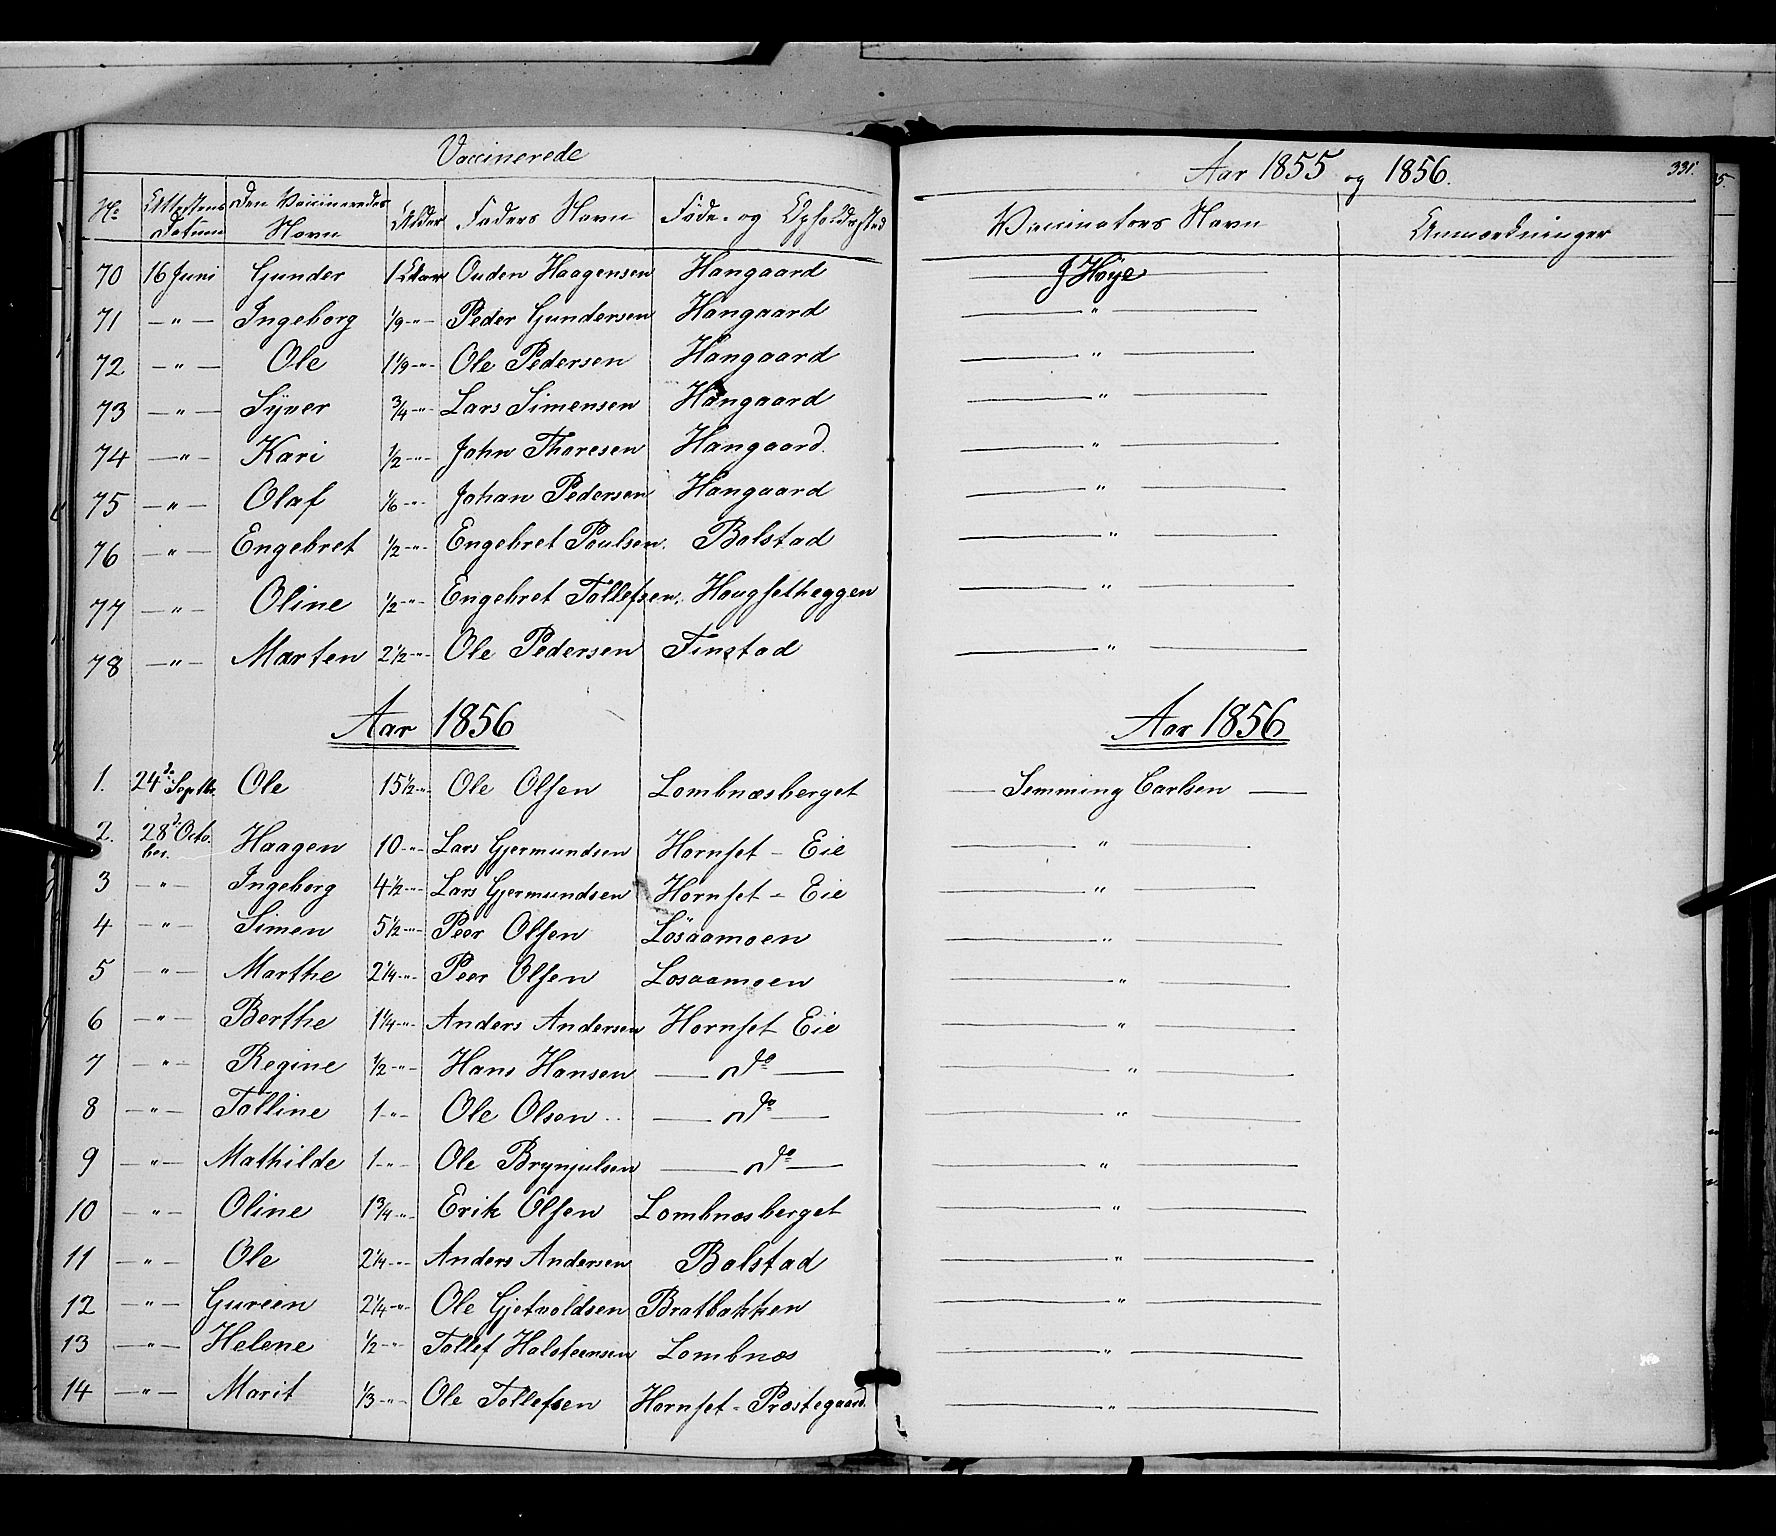 Vaccinerede
Aar 1855 og 1856.
331.
No Attestens Datum Den Vaccineredes Navn Alder Faders Navn Føde- og Opholdssted Vaccinators Navn Anmærkninger
70 16 Juni Gunder 1 Aar Ouden Haagensen Hangaard J Høye
71 — " — Ingeborg 1/9 -"- Peder Gundersen Hangaard — " —
72 — " — Ole 1 1/9 -"- Ole Pedersen Hangaard — " —
73 — " — Syver 3/4 -"- Lars Simensen Hangaard — " —
74 — " — Kari 1/2 -"- John Thoresen Hangaard. — " —
75 — " — Olaf 1/6 -"- Johan Pedersen Hangaard — " —
76 — " — Engebret 1/2 -"- Engebret Poulsen. Bolstad — " —
77 — " — Oline 1/2 -"- Engebret Tollefsen. Haugsetheggen — " —
78 — " — Marten 2 1/2 -"- Ole Pedersen Finstad — " —
Aar 1856
Aar 1856
1. 24de Septbr. Ole 15 1/2 -"- Ole Olsen Lombnæsberget — Semming Carlsen —
2. 28de Octo- Haagen 10 -"- Lars Gjermundsen Hornset - Eie — " —
ber.
3 — " — Ingeborg 4 1/2 -"- Lars Gjermundsen Hornset - Eie — " —
4 — " — Simen 5 1/2 -"- Peer Olsen Løsaamoen — " —
5 — " — Marthe 2 1/4 -"- Peer Olsen Løsaamoen — " —
6 — " — Berthe 1 1/4 -"- Anders Andersen Hornset Eie — " —
7 — " — Regine 1/2 -"- Hans Hansen — do — — " —
8 — " — Tolline 1 -"- Ole Olsen — do — — " —
9 — " — Mathilde 1 -"- Ole Brynjulsen — do — — " —
10 — " — Oline 1 3/4 -"- Erik Olsen Lombnæsberget — " —
11 — " — Ole 2 1/4 -"- Anders Andersen Bolstad — " —
12 — " — Gureen 2 1/4 -"- Ole Gjetvoldsen Bratbakken — " —
13 — " — Helene 1/2 -"- Tollef Halsteensen Lombnæs — " —
14 — " — Marit 1/3 -"- Ole Tollefsen Hornset - Præstegaard. — " —